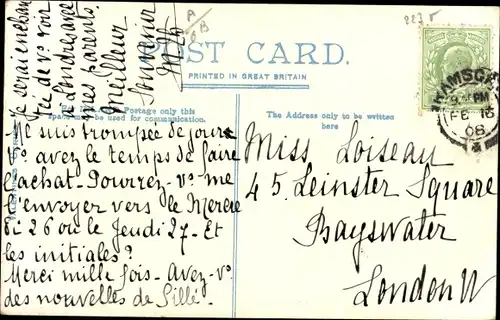 Je serai enchan
tée de vs voir
à Londres avec
mes parents.
Meilleur
Souvenir
A
B
227
POST CARD.
PRINTED IN GREAT BRITAIN
Postage only this
space may be used for communication.
The Address only to be written
here
Je me suis trompée de jour
Vs avez le temps de faire
l'achat - Pourrez - vs me
l'envoyer vers le Mercre
di 26 ou le Jeudi 27 - Et
les initiales?
Merci mille fois - Avez - vs
des nouvelles de Sillé -
Miss Loiseau
45. Leinster Square
Bayswater
London W
RAMSGA
PM
FE 16
08